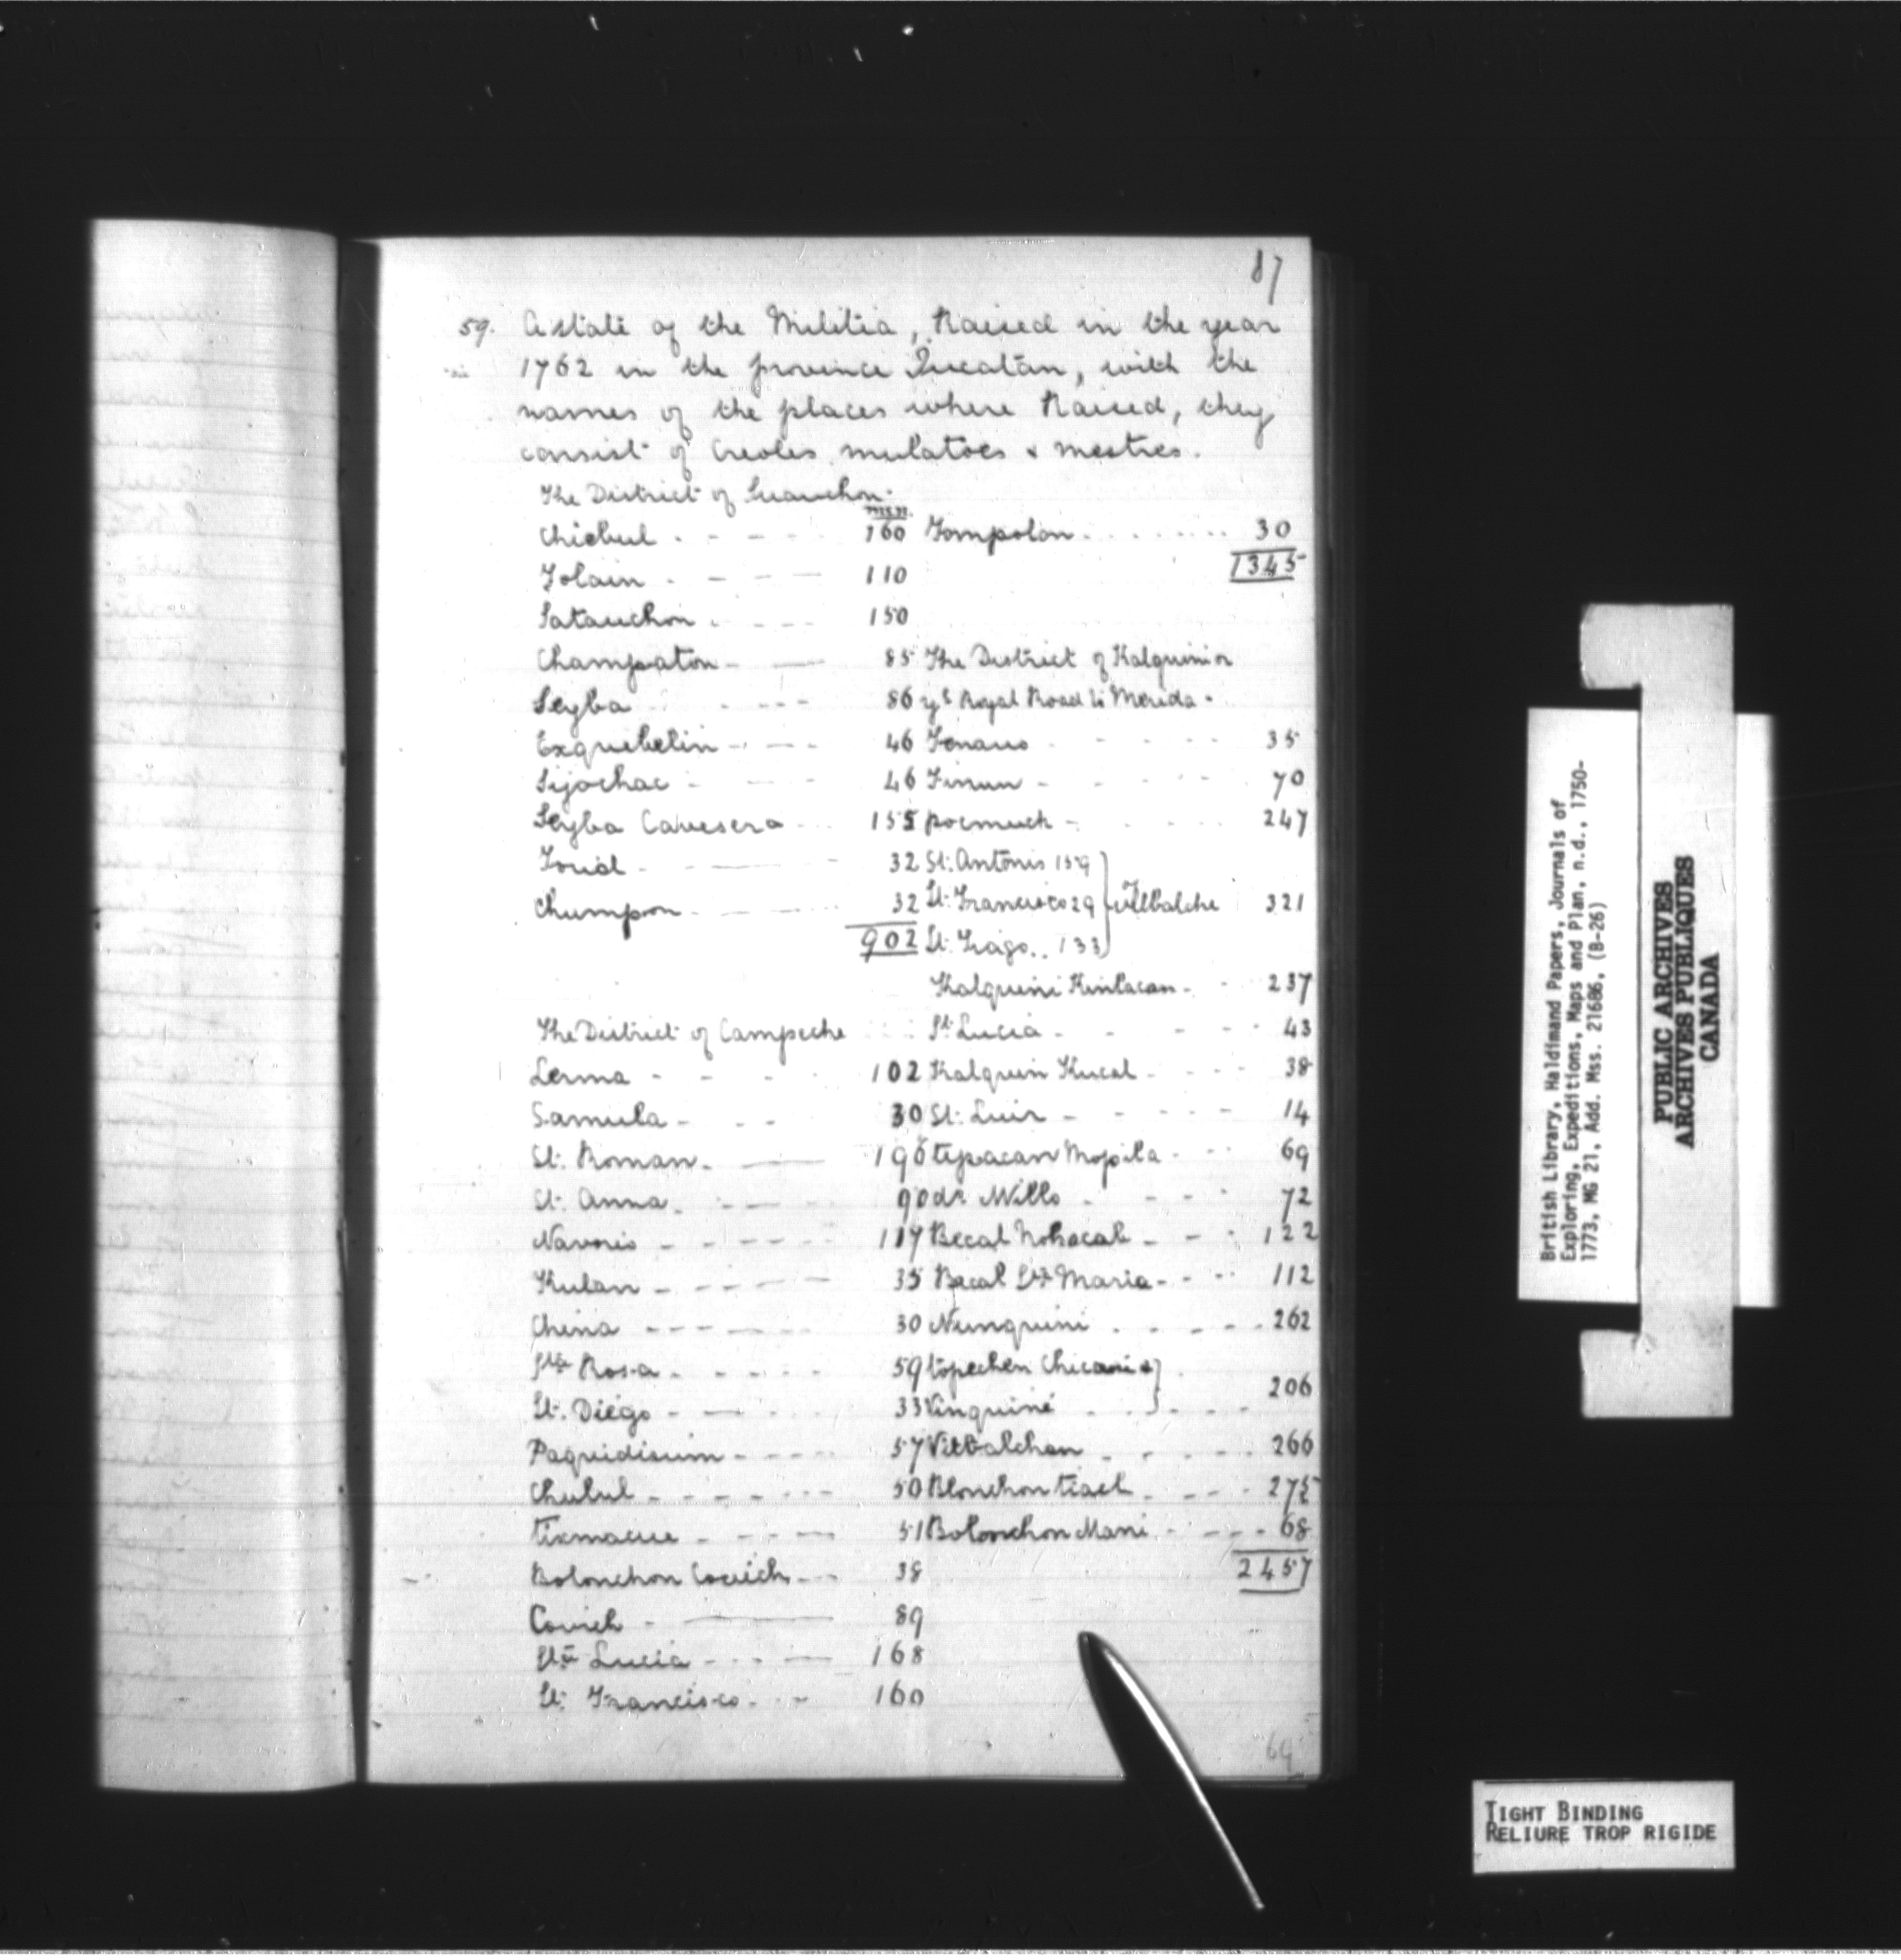 87
59. A state of the Militia, Raised in the year
1762 in the province Yucatan, with the
names of the places where Raised, they
consist of Creoles, mulatoes & mestres.
The District of
men.
Chiebul 160
Yolain 110
Satauchon 150
Champaton 85
Seyba 86
Exquebelin 46
Sijochac 46
Seyba Cavesera 155
32
Chumpon 32
902
The District of Campeche
Lerma 102
Samula 30
St. Roman 196
St. Anna 90
Navorio 117
Kulan 35
China 30
Sta Rosa 59
St. Diego 33
Paquidisium 57
Chulul 50
Tixmacue 51
Bolonchon Cavich 38
Cavich 89
Sta Lucia 168
St. Francisco 160
Yompolon 30
1345
The District of Kalquini or
ye Royal Road to Merida
35
70
pocmuch 247
St. Antonio 159
St. Francisco 29 321
St. Yago 133
Kalquini Kinlacan 237
St. Lucia 43
Kalquin Kucal 38
St. Luis 14
tepacan Mopila 69
do. Mills 72
Becal Nohacab 122
Becal Sta Maria 112
Nunquini 262
topechen Chicani &
Vinquiné 206
Vitbalchan 266
Blonchon ticel 275
Bolonchon Mani 68
2457
69
British Library, Haldimand Papers, Journals of
Exploring, Expeditions, Maps and Plan, n.d., 1750-
1773, MG 21, Add. Mss. 21686, (B-26)
PUBLIC ARCHIVES
ARCHIVES PUBLIQUES
CANADA
TIGHT BINDING
RELIURE TROP RIGIDE